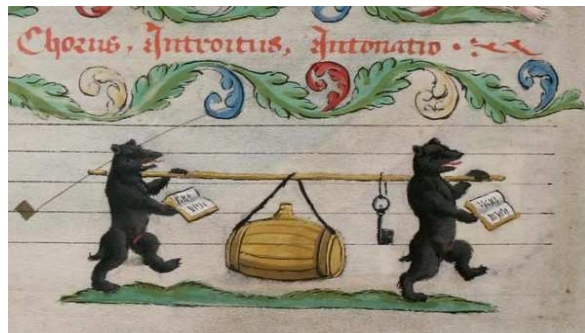 Chorus, Introitus, Intonatio.